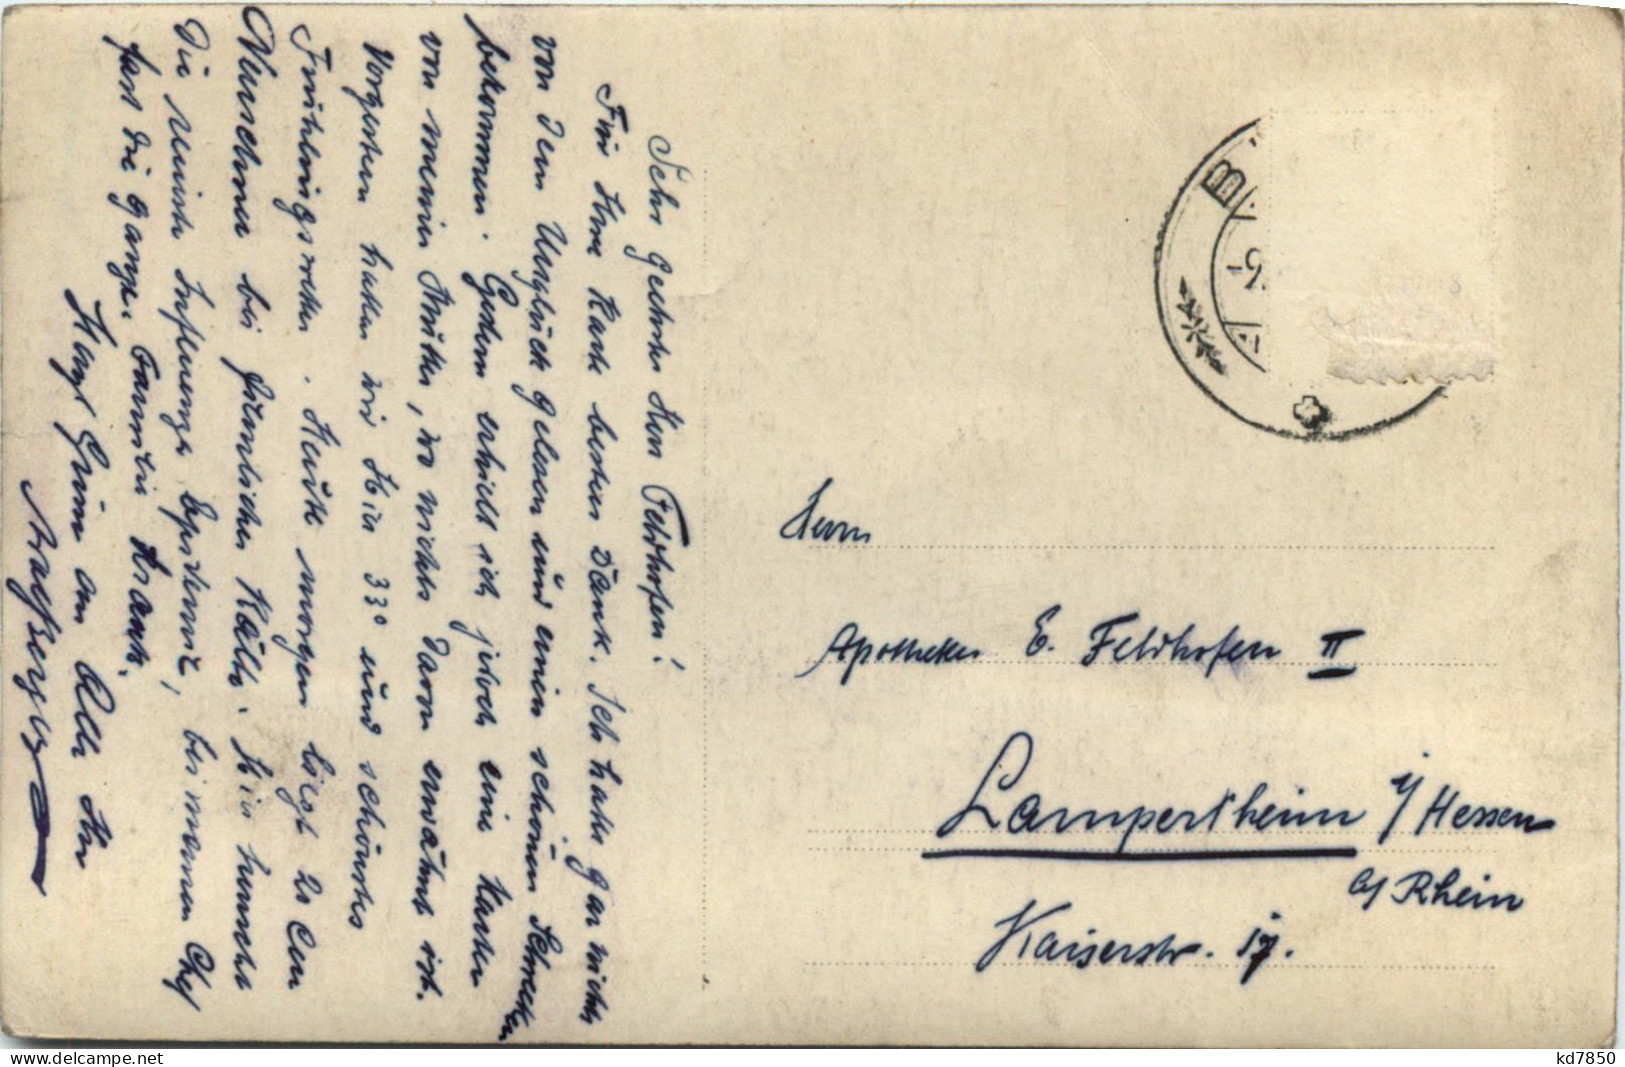 Sehr geehrter Herr Feldhofen!
Für Ihre Karte besten Dank. Ich habe gar nichts
von dem Unglück gelesen und einen schönen Schrecken
bekommen. Gestern erhielt ich jedoch eine Karte
von meiner Mutter, wo nichts davon erwähnt ist.
Vorgestern hatten wir hier 33° und schönstes
Frühlingswetter. Heute morgen liegt
Meter Schnee bei Kälte. Hier herrscht
die reinste Influenza Epidemie, bei meinem Chef
fast die ganze Familie krank.
Herzl Grüße an Alle Ihr
B
5
Herrn
Apotheker E. Feldhofen II
Lampertheim i/Hessen
a/Rhein
Kaiserstr. 17.
www.delcampe.net
kd7850